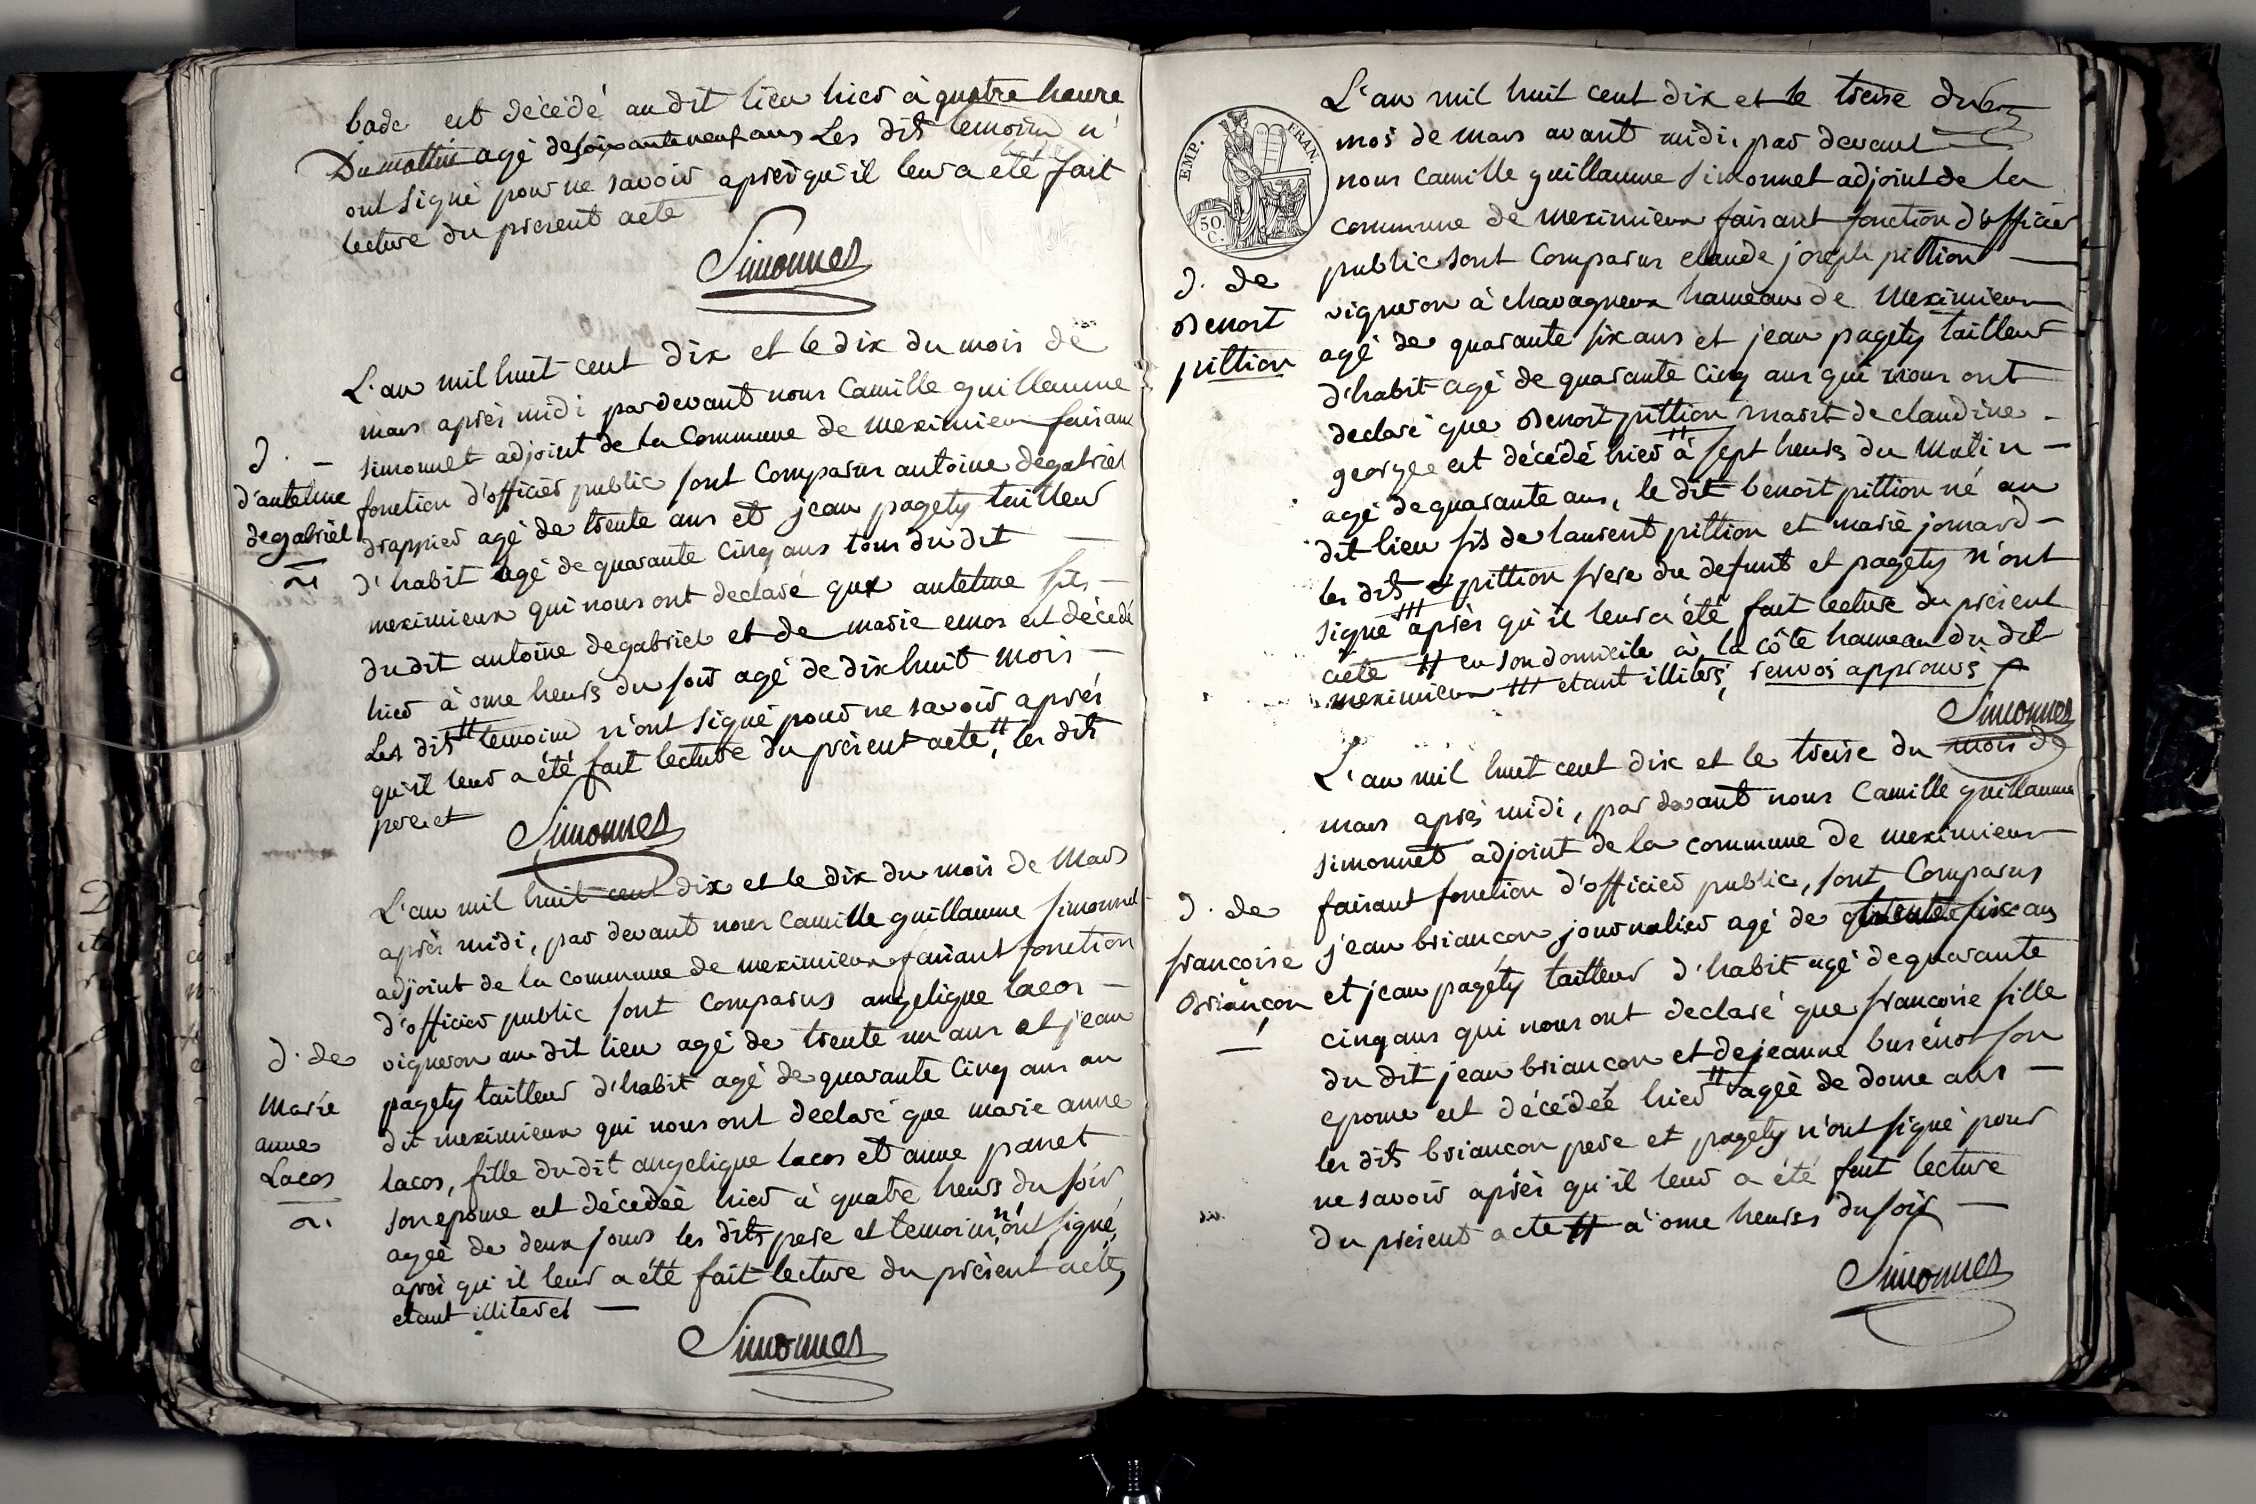 bade est décédé audit lieu hier à quatre heure
Du mattin agé de soixante neuf ans Les dits temoins n'
ont signé pour ne savoir après qu'il leur a été fait
lecture du present acte
Simonnet
L'an mil huit cent dix et le dix du mois de
mars après midi pardevant nous Camille guillaume
simonnet adjoint de la Commune de meximieux faisant
fonction d'officier public sont Comparus antoine degabriel
drappier agé de trente ans et jean pagety tailleur
d'habit agé de quarante cinq ans tous dudit
meximieux qui nous ont declaré que antelme fils
dudit antoine degabriel et de marie emos est décédé
hier à onse heures du soir agé de dix huit mois
Les dits # temoins n'ont signé pour ne savoir après
qu'il leur a été fait lecture du présent acte, # les dits
pere et
Simonnet
D.
d'antelme
degabriel
L'an mil huit cent dix et le dix du mois de Mars
après midi, par devant nous Camille guillaume simonnet
adjoint de la commune de meximieux faisant fonction
d'officier public sont comparus angelique lacos
vigneron au dit lieu agé de trente un ans et jean
pagety tailleur d'habit agé de quarante cinq ans au
dit meximieux qui nous ont declaré que marie anne
lacos, fille dudit angelique lacos et anne panet
son epouse est décédée hier à quatre heures du soir
agée de deux jours les dits pere et temoins n'ont signé,
après qu'il leur a été fait lecture du présent acte,
etant illiteres
Simonnet
D. de
Marie
anne
Lacos
EMP. FRAN.
50. C.
L'an mil huit cent dix et le treise du
mois de mars avant midi, par devant
nous Camille guillaume simonnet adjoint de la
commune de meximieux faisant fonction d'officier
public sont Comparus claude joseph pittion
vigneron à chavagneux hameau de Meximieux
agé de quarante six ans et jean pagety tailleur
d'habit agé de quarante cinq ans qui nous ont
declaré que Benoit pittion marit de claudine
georges est décédé hier # à sept heures du Matin
agé de quarante ans, le dit benoit pittion né au
dit lieu fils de laurent pittion et marie jomard
les dits pittion frere du defunt et pagety n'ont
signé ## après qu'il leur a été fait lecture du présent
acte # en son domicile à la côte hameau du dit
meximieux ## etant illiters, renvois approuvés
Simonnet
D. de
Benoit
pittion
L'an mil huit cent dix et le treise du mois de
mars après midi, par devant nous Camille guillaume
simonnet adjoint de la commune de meximieux
faisant fonction d'officier public, sont Comparus
jean briancon journalier agé de six ans
et jean pagety tailleur d'habit agé de quarante
cinq ans qui nous ont declaré que francoise fille
du dit jean briancon et de jeanne busenot son
epouse est décédée hier # agée de douse ans
les dits briancon pere et pagety n'ont signé pour
ne savoir après qu'il leur a été fait lecture
du présent acte # à onse heures du soir
Simonnet
D. de
francoise
Briançon